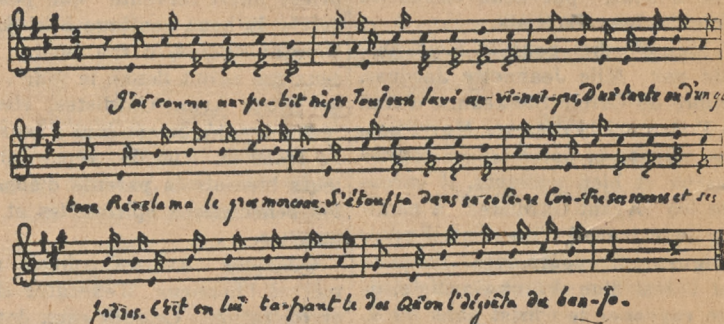 J'ai connu un pe-tit nègre Toujours lavé au vi-nai-gre, D'une tarte ou d'un g
teau Réclama le gros morceau. S'étouffa dans sa colè-re Con-tre ses soeurs et ses
frères. C'est en lui ta-pant le dos Qu'on l'dégoûta du ban-jo.